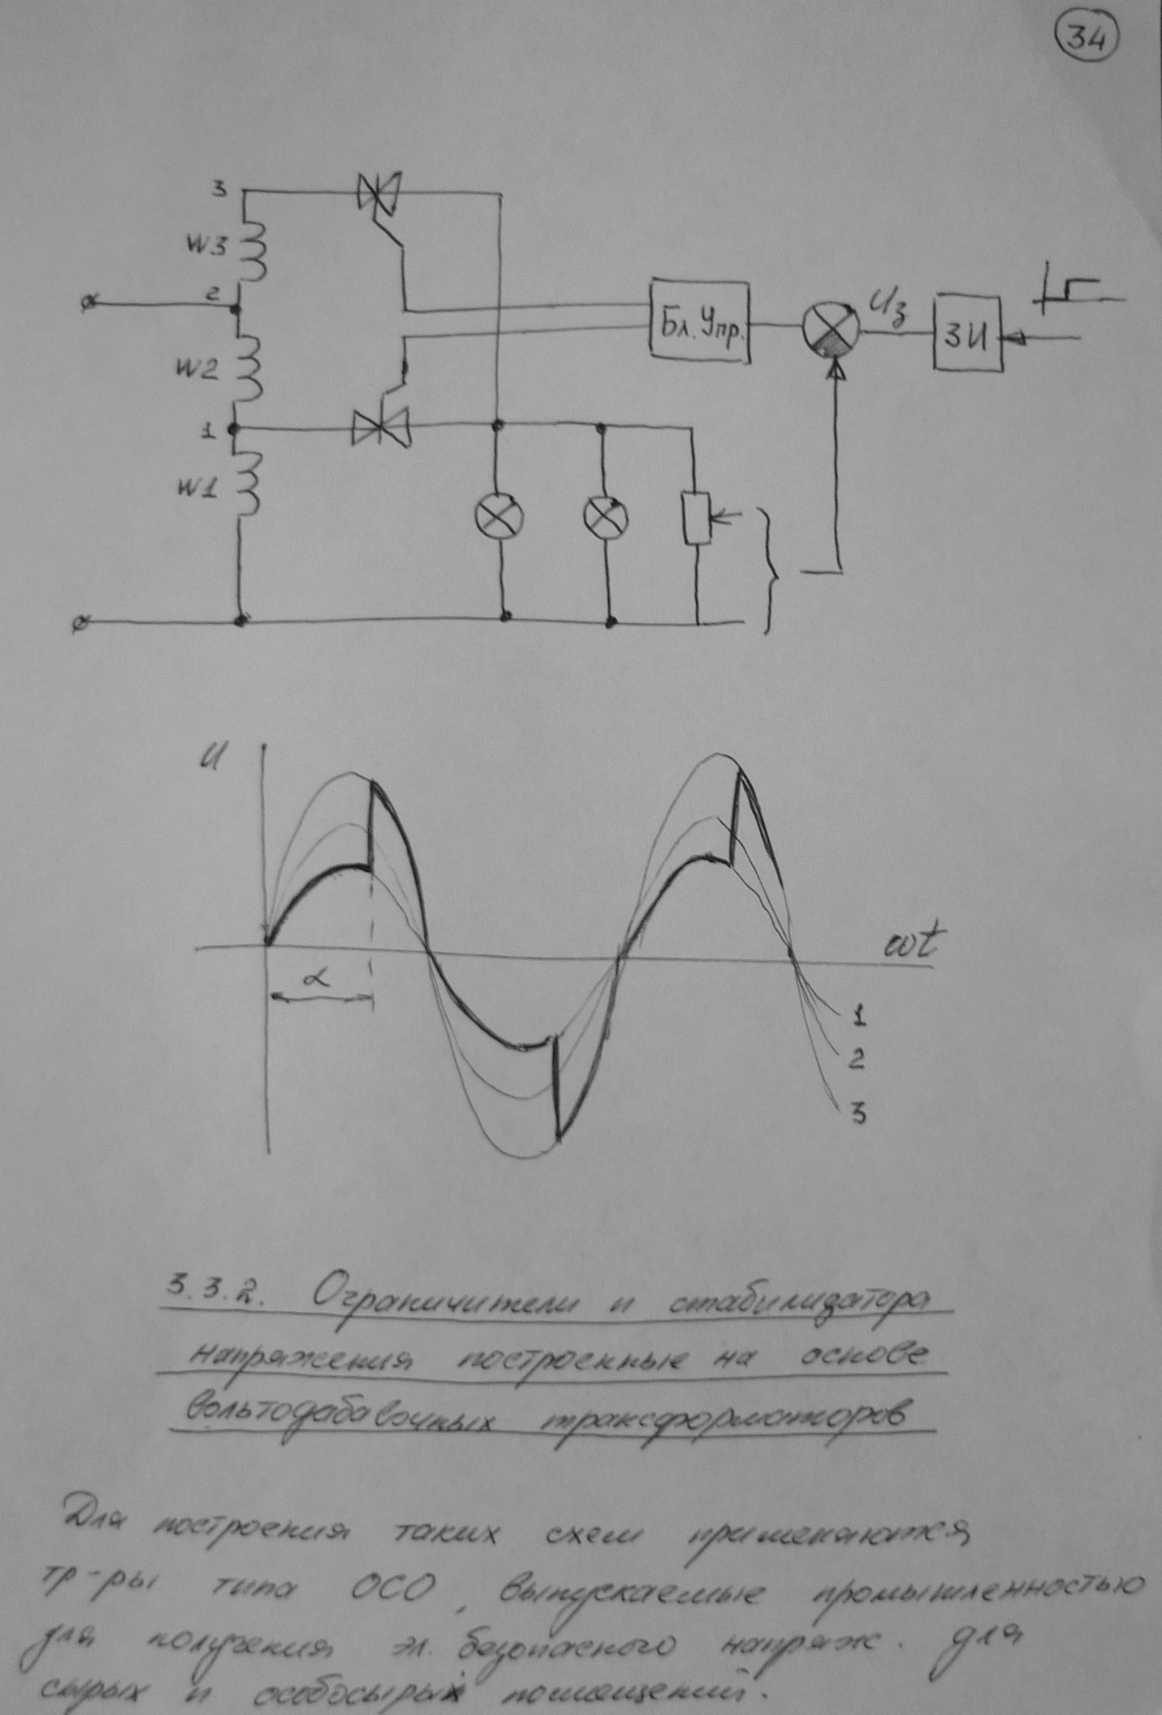 34
3
W3
2
W2
1
W1
Бл. Упр.
Uз
ЗИ
U
α
ωt
1
2
3
3.3.2. Ограничители и стабилизатора
напряжения построенные на основе
вольтодабавочных трансформаторов
Для построения таких схем применяются
тр-ры типа ОСО, выпускаемые промышленностью
для получения эл. безопасного напряж. для
сырых и особосырых помещений.